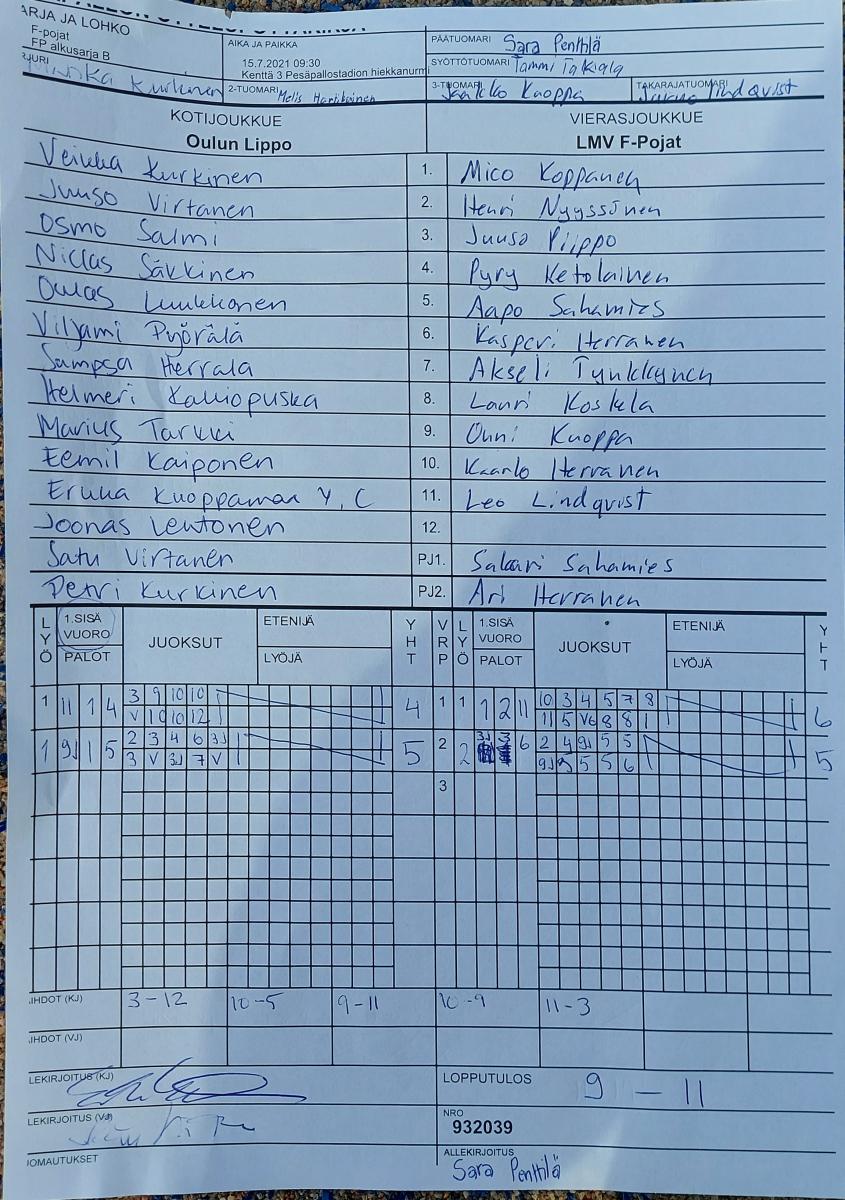 ARJA JA LOHKO
F-pojat
FP alkusarja B
AIKA JA PAIKKA
15.7.2021 09:30
Kenttä 3 Pesäpallostadion hiekkanurmi
PÄÄTUOMARI Sara Penttilä
SYÖTTÖTUOMARI Tammi
Kurkinen
2-TUOMARI
3-TUOMARI Kuoppa
TAKARAJATUOMARI Lindqvist
KOTIJOUKKUE
Oulun Lippo
VIERASJOUKKUE
LMV F-Pojat
Veikka Kurkinen 1. Mico Koppanen
Juuso Virtanen 2. Henri Nyyssönen
Osmo Salmi 3. Juuso Piippo
Niclas Säkkinen 4. Pyry Ketolainen
Luukkonen 5. Aapo Sahamies
Viljami Pyörälä 6. Kasperi Herranen
Sampsa Herrala 7. Akseli Tynkkynen
Helmeri Kalliopuska 8. Lauri Koskela
Marius Tarkki 9. Onni Kuoppa
Eemil Kaiponen 10. Kaarlo Herranen
Kuoppamaa Y, C 11. Leo Lindqvist
Joonas Lehtonen 12.
Satu Virtanen PJ1. Sakari Sahamies
Petri Kurkinen PJ2. Ari Herranen
LYÖ 1.SISÄ VUORO PALOT JUOKSUT ETENIJÄ LYÖJÄ YHT VRP LYÖ 1.SISÄ VUORO PALOT JUOKSUT ETENIJÄ LYÖJÄ YHT
1 11 1 4 3 9 10 10 4 1 1 1 2 11 10 3 4 5 7 8 6
V 10 10 12 11 5 V6 8 8 1
1 9J 1 5 2 3 4 6 3J 5 2 2 3J 3 6 2 4 9J 5 5 5
3 V 3J 7 V 9J 5 5 6
3
IHDOT (KJ) 3-12 10-5 9-11 10-9 11-3
IHDOT (VJ)
LEKIRJOITUS (KJ)
LOPPUTULOS 9 - 11
LEKIRJOITUS (VJ)
NRO
932039
IOMAUTUKSET
ALLEKIRJOITUS
Sara Penttilä